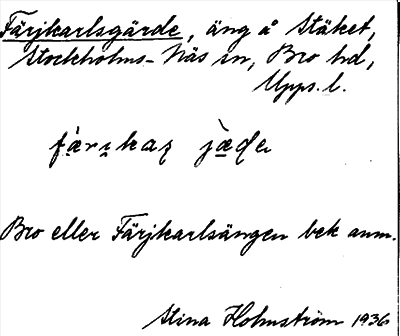 Färjkarlsgärde, äng å Stäket,
Stockholms-Näs sn, Bro hd,
Upps. l.
färıkaɽ jäde
Bro eller Färjkarlsängen bek anm.
Stina Holmström 1936